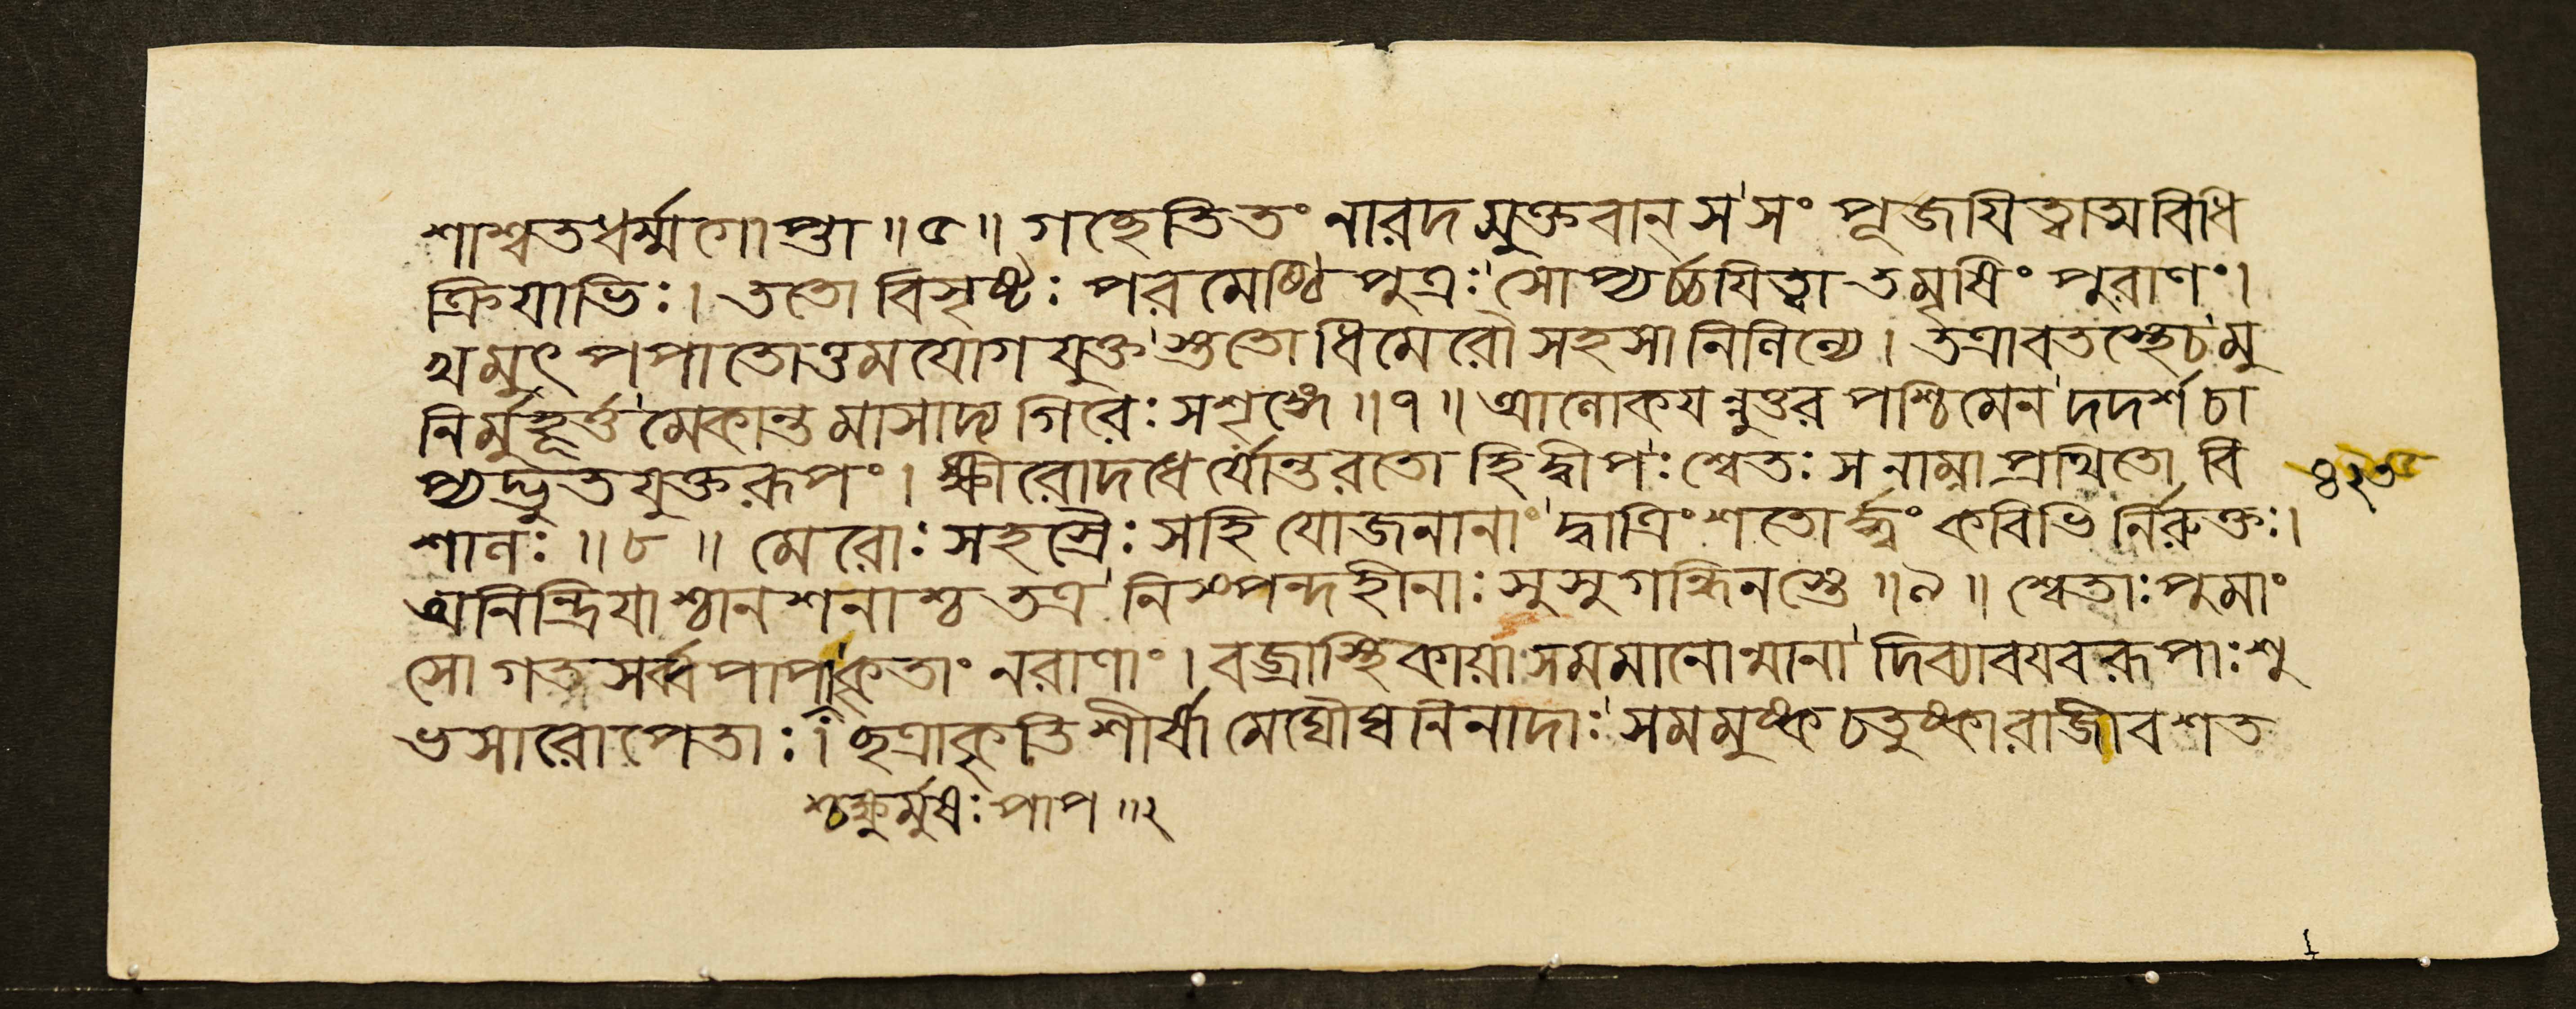 শাশ্বতধর্ম্মগোপ্তা ॥৫॥ গচ্ছেতিতং নারদমুক্তবান্ স'সং পূজযিত্বাত্মবিধি
ক্রিযাভিঃ। ততো বিসৃষ্টঃ পরমেষ্ঠিপুত্রঃ'সোপ্যর্চ্চযিত্বা তমৃষিং পুরাণং।
খমুৎপপাতোত্তমযোগযুক্ত'স্তুতোধিমেরৌ সহসা নিলিল্যে। তত্রাবতস্থেচ'মু
নির্মুহূর্ত্ত'মেকান্তমাসাদ্য গিরেঃ সশৃঙ্গে ॥৭॥ আলোকযন্নুত্তরপশ্চিমেন'দদর্শচা
প্যদ্ভুতযুক্তরূপং। ক্ষীরোদধের্যোত্তরতো হিদ্বীপ'ঃ শ্বেতঃ সনাম্না প্রথিতো বি
৪২৩
শালঃ ॥৮॥ মেরোঃ সহস্রৈঃ সহি যোজনানাং'দ্বাত্রিংশতোর্দ্ধ্বং কবিভির্নিরুক্তঃ।
অনিন্দ্রিযাশ্চানশনাশ্চ তত্র'নিষ্পন্দহীনাঃ সুসুগন্ধিনস্তে ॥৯॥ শ্বেতাঃ পুমাং
সো গতসর্ব্বপাপা'কৃতাং নরাণাং। বজ্রাস্থিকায়াঃ সমমানোন্মানা'দিব্যাবযবরূপাঃ শু
ভসারোপেতাঃ। ছত্রাকৃতিশীর্ষা মেঘৌঘনিনাদাঃ'সমমুষ্কচতুষ্কারাজীবশত
শ্চক্ষুর্মুষঃ পাপ ॥২